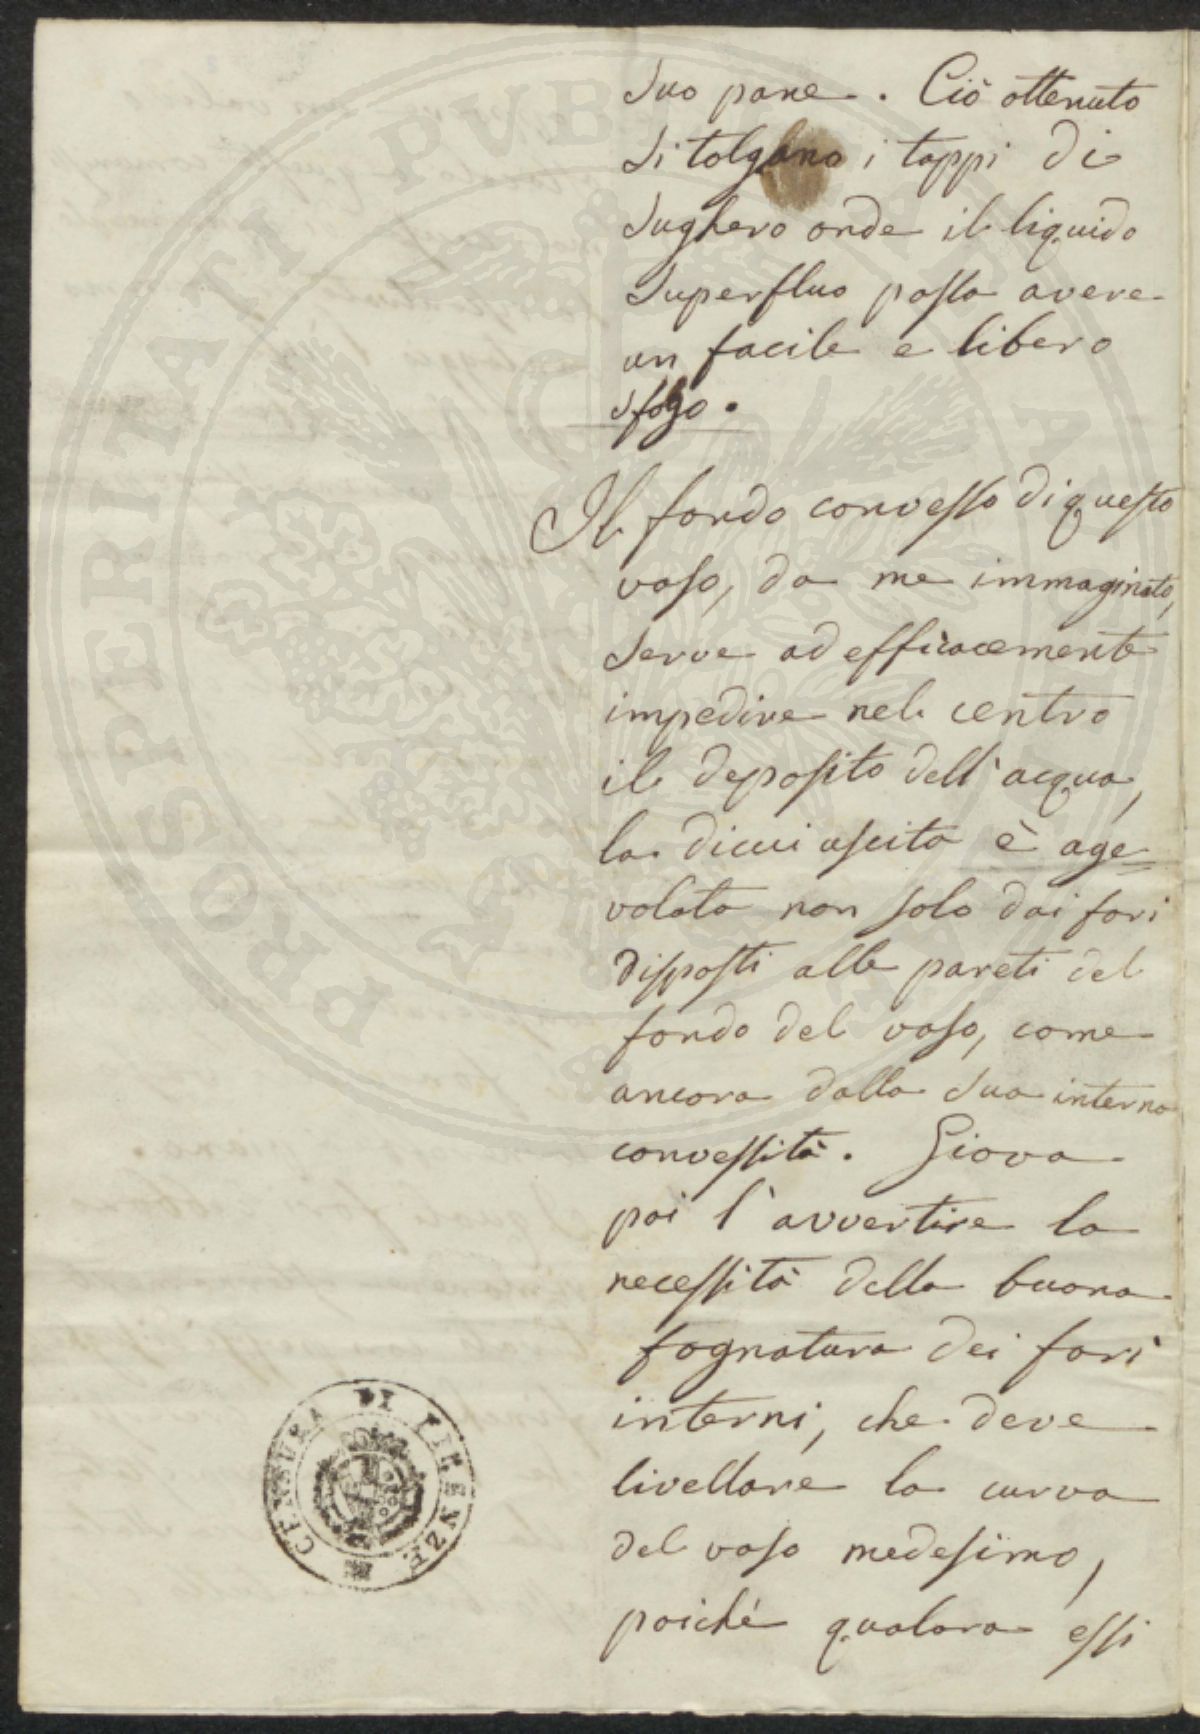 suo pane. Ciò ottenuto
si tolgano i tappi di
sughero onde il liquido
superfluo possa avere
un facile e libero
sfogo.
Il fondo convesso di questo
vaso, da me immaginato,
serve ad efficacemente
impedire nel centro
il deposito dell'acqua,
la di cui uscita è age=
volata non solo dai fori
disposti alle pareti del
fondo del vaso, come
ancora dalla sua interna
convessità. Giova
poi l'avvertire la
necessità della buona
fognatura dei fori
interni, che deve
livellare la curva
del vaso medesimo,
poichè qualora essi
CENSURA DI FIRENZE
PROSPERITATI PUBLICAE AUGENDAE